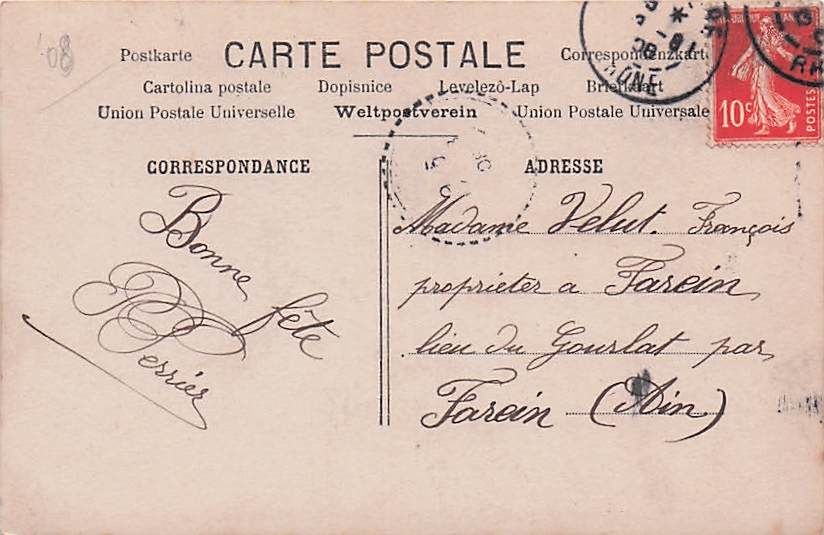 '08
Postkarte CARTE POSTALE Correspondenzkarte
Cartolina postale Dopisnice Levelezò-Lap Briefkaart
Union Postale Universelle Weltpostverein Union Postale Universale
CORRESPONDANCE
Bonne fête
P Perrier
ADRESSE
Madame Velut. François
proprieter a Farein
lieu du Gourlat par
Farein (Ain)
10c
POSTES
RHONE